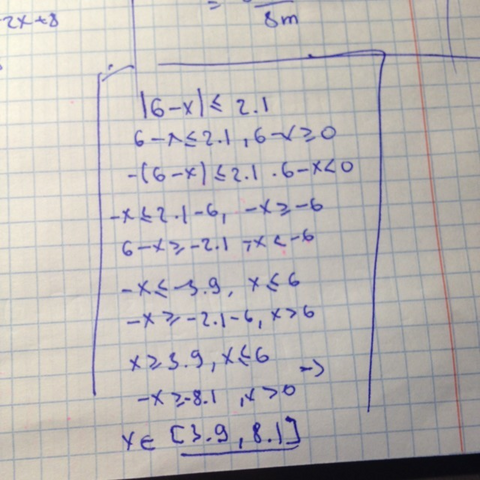 -2x+8
8m
|6-x| ≤ 2.1
6-x ≤ 2.1 , 6-x ≥ 0
-(6-x) ≤ 2.1 . 6-x < 0
-x ≤ 2.1-6, -x ≥ -6
6-x ≥ -2.1 -x < -6
-x ≤ -3.9, x ≤ 6
-x ≥ -2.1-6, x > 6
x ≥ 3.9, x ≤ 6 ->
-x ≥ -8.1 , x > 0
x ∈ [3.9, 8.1]